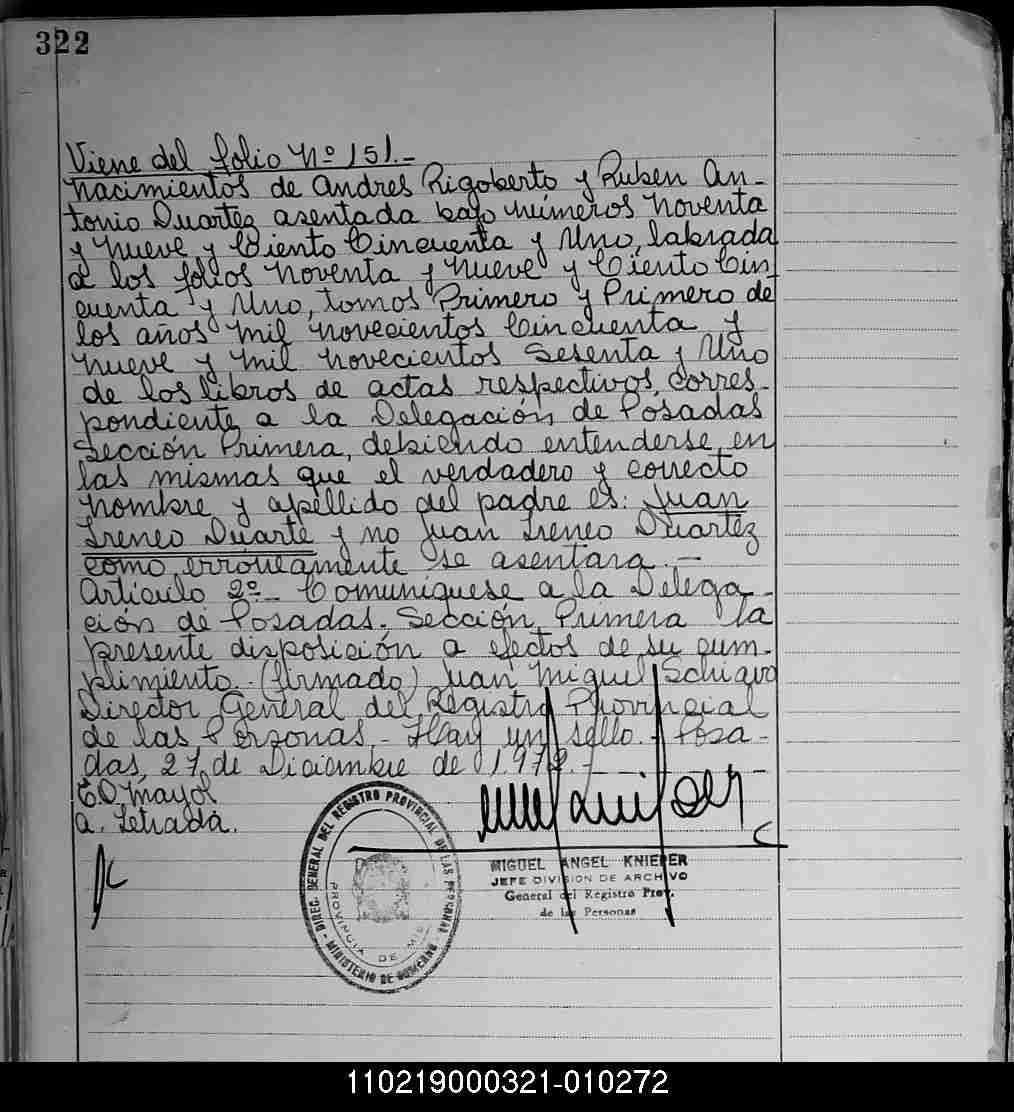 322
Viene del folio Nº 151.-
nacimientos de Andres Rigoberto y Ruben An-
tonio Duartez asentada bajo números noventa
y nueve y Ciento Cincuenta y Uno, labrada
a los folios noventa y nueve y Ciento Cin
cuenta y Uno, tomos Primero y Primero de
los años mil novecientos Cincuenta y
nueve y mil novecientos Sesenta y Uno
de los libros de actas respectivos, corres-
pondiente a la Delegación de Posadas
Sección Primera, debiendo entenderse en
las mismas que el verdadero y correcto
nombre y apellido del padre es: Juan
Ireneo Duarte y no Juan Ireneo Duartez
como erróneamente se asentara.-
Artículo 2º- Comuníquese a la Delega-
ción de Posadas. Sección Primera la
presente disposición a efectos de su cum-
plimiento.- (firmado) Juan Miguel Schiavo
Director General del Registro Provincial
de las Personas.- Hay un sello.- Posa-
das, 27, de Diciembre de 1.972.-
E.D. Mayol
a. Letrada.
DIREC. GENERAL DEL REGISTRO PROVINCIAL DE LAS PERSONAS
PROVINCIA DE MIS
MINISTERIO DE GOBIERNO
MIGUEL ANGEL KNIEPER
JEFE DIVISION DE ARCHIVO
General del Registro Prov.
de las Personas
110219000321-010272